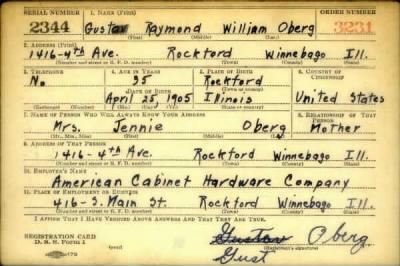 SERIAL NUMBER 1. NAME (Print) ORDER NUMBER
2344 Gustav Raymond William Oberg 3231
(First) (Middle) (Last)
2. ADDRESS (Print)
1416-4th Ave. Rockford Winnebago Ill.
(Number and street or R. F. D. number) (Town) (County) (State)
3. TELEPHONE 4. AGE IN YEARS 5. PLACE OF BIRTH 6. COUNTRY OF CITIZENSHIP
No 35 Rockford
DATE OF BIRTH (Town or county)
April 25, 1905 Illinois United States
(Exchange) (Number) (Mo.) (Day) (Yr.) (State or country)
7. NAME OF PERSON WHO WILL ALWAYS KNOW YOUR ADDRESS 8. RELATIONSHIP OF THAT PERSON
Mrs. Jennie Oberg Mother
(Mr., Mrs., Miss) (First) (Middle) (Last)
9. ADDRESS OF THAT PERSON
1416-4th Ave. Rockford Winnebago Ill.
(Number and street or R. F. D. number) (Town) (County) (State)
10. EMPLOYER'S NAME
American Cabinet Hardware Company
11. PLACE OF EMPLOYMENT OR BUSINESS
416-S. Main St. Rockford Winnebago Ill.
(Number and street or R. F. D. number) (Town) (County) (State)
I AFFIRM THAT I HAVE VERIFIED ABOVE ANSWERS AND THAT THEY ARE TRUE.
REGISTRATION CARD
D. S. S. Form 1 Gustav Oberg
(Registrant's signature)
Gust